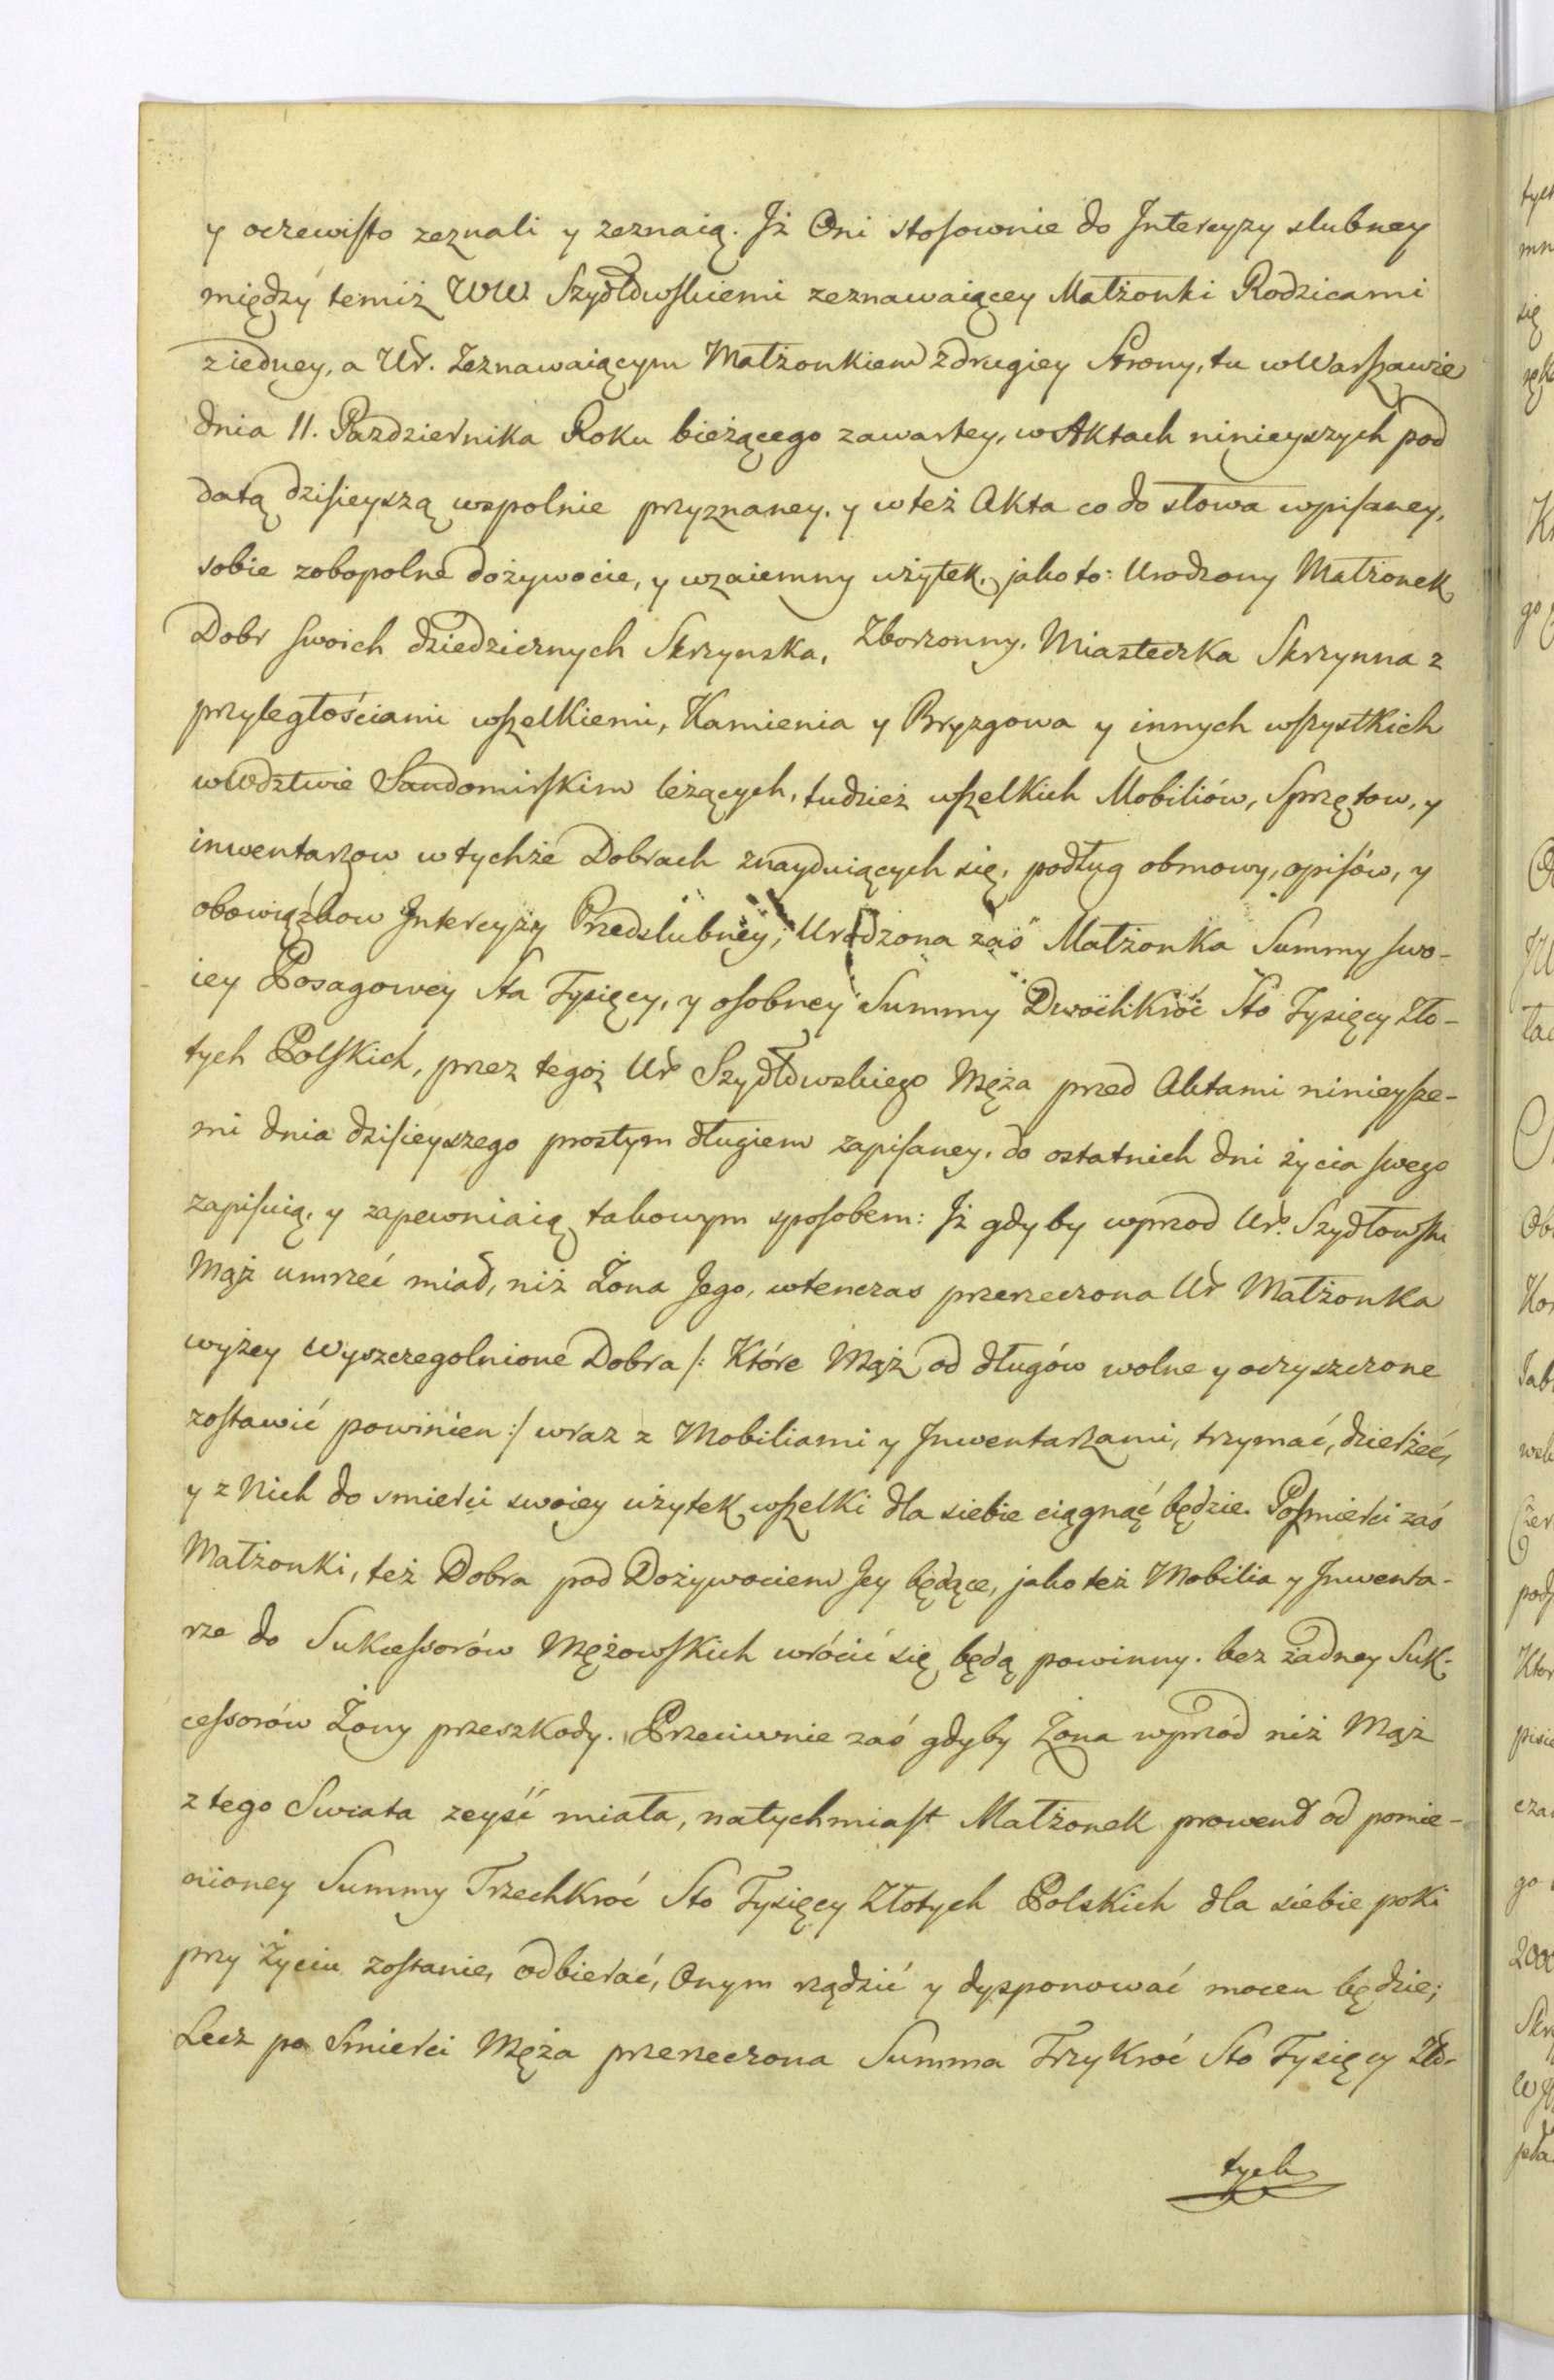 y oczewisto zeznali y zeznaią. Jż Oni stosownie do Intercyzy slubney
między temiż WW. Szydłowskiemi zeznawaiącey Małżonki Rodzicami
z iedney, a Ur. Zeznawaiącym Małżonkiem z drugiey Strony, tu w Warszawie
dnia 11. Pazdziernika Roku bieżącego zawartey, w Aktach ninieyszych pod
datą dzisieyszą wspolnie przyznaney, y w też Akta co do słowa wpisaney,
sobie zobopolne dożywocie, y wzaiemny użytek, jako to: Urodzony Małżonek
Dobr swoich dziedzicznych Skrzynska, Zborzonny, Miasteczka Skrzynna z
przyległościami wszelkiemi, Kamienia y Bryzgowa y innych wszystkich
w Wdztwie Sandomirskim leżących, tudzież wszelkich Mobiliów, Sprzętow, y
inwentarzow w tychże Dobrach znayduiących się, podług obmowy, opisów, y
obowiązkow Intercyzy Przedslubney; Urodzona zaś Małżonka Summy swo-
iey Posagowey Sta Tysięcy, y osobney Summy Dwochkroć Sto Tysięcy Zło-
tych Polskich, przez tegoż Ur Szydłowskiego Męża przed Aktami ninieysze-
mi dnia dzisieyszego prostym długiem zapisaney, do ostatnich dni życia swego
zapisuią, y zapewniaią takowym sposobem: Jż gdyby wprzod Ur. Szydłowski
Mąż umrzeć miał, niż Żona Jego, wtenczas przerzeczona Ur Małżonka
wyżey Wyszczegolnione Dobra /: Które Mąż od długów wolne y oczyszczone
zostawić powinien :/ wraz z Mobiliami y Inwentarzami, trzymać, dzierżeć,
y z Nich do smierci swoiey użytek wszelki dla siebie ciągnąć będzie. Po smierci zaś
Małżonki, też Dobra pod Dożywociem Jey będące, jako też Mobilia y Inwenta-
rze do Sukcessorów Mężowskich wrócić się będą powinny, bez żadney Suk-
cessorów Żony przeszkody. Przeciwnie zaś gdyby Żona wprzód niż Mąż
z tego Swiata zeyść miała, natychmiast Małżonek prowent od pomie-
nioney Summy Trzechkroć Sto Tysięcy Złotych Polskich dla siebie poki
przy Życiu zostanie, odbierać, Onym rządzić y dysponować mocen będzie;
Lecz po Smierci Męża przerzeczona Summa Trzykroć Sto Tysięcy Zło-
tych